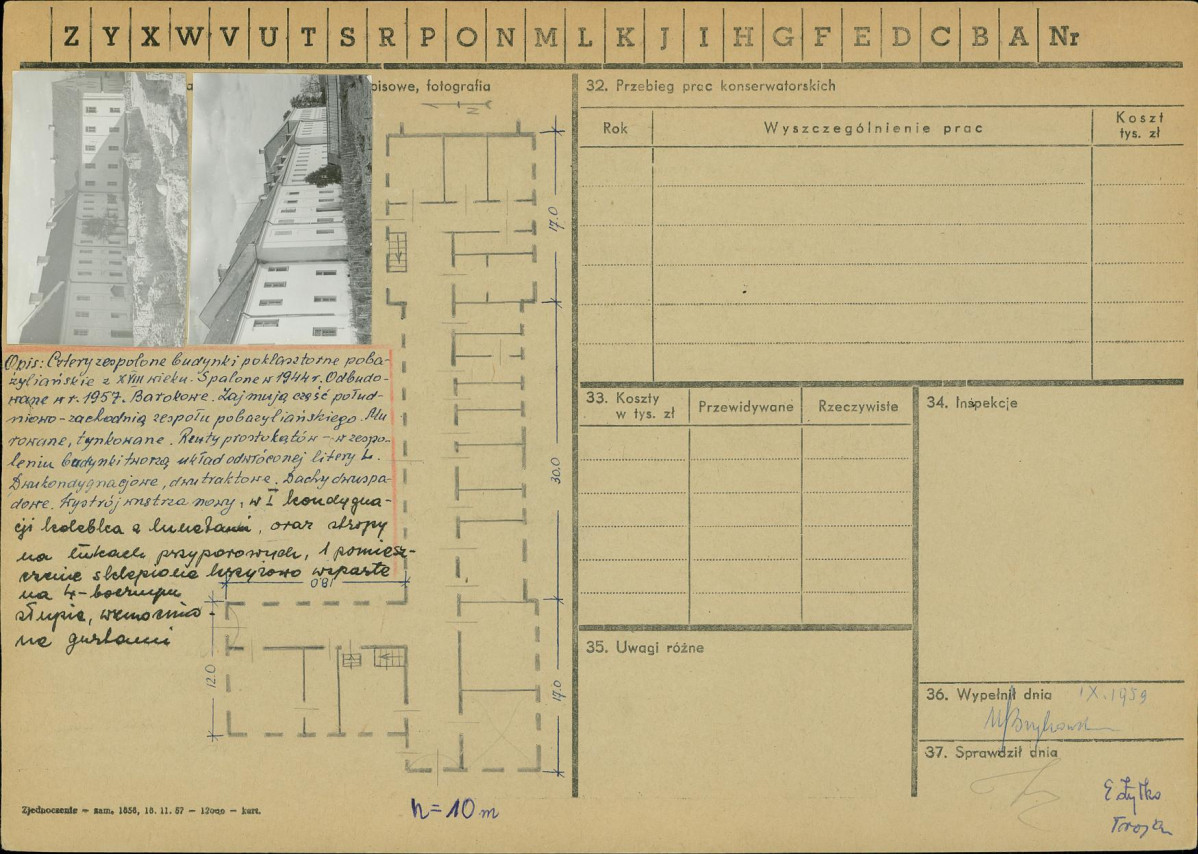 Z Y X W V U T S R P O N M L K J I H G F E D C B A Nr
isowe, fotografia
N
17.0
30.0
17.0
18.0
12.0
Opis: Cztery zespolone budynki poklasztorne poba-
zyliańskie z XVIII wieku. Spalone w 1944 r. Odbudo-
wane w r. 1957. Barokowe. Zajmują część połud-
niowo-zachodnią zespołu pobazyliańskiego. Mu
rowane, tynkowane. Rzuty prostokątów – w zespo-
leniu budynki tworzą układ odwróconej litery L.
Dwukondygnacjowe, dwutraktowe. Dachy dwuspa-
dowe. Wystrój wnętrza nowy, w I kondygna-
cji kolebka z lunetami, oraz stropy
na łukach przyporowych, 1 pomiesz-
czenie sklepione krzyżowo wsparte
na 4-bocznym
słupie, wzmocnio
ne gurtami
h = 10 m
Zjednoczenie – zam. 1858, 18. 11. 57 – 12000 – kart.
32. Przebieg prac konserwatorskich
Rok
Wyszczególnienie prac
Koszt
tys. zł
33. Koszty
w tys. zł
Przewidywane
Rzeczywiste
34. Inspekcje
35. Uwagi różne
36. Wypełnił dnia IX. 1959
37. Sprawdził dnia